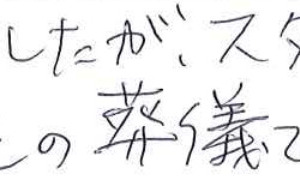 したが、スタ
の葬儀で